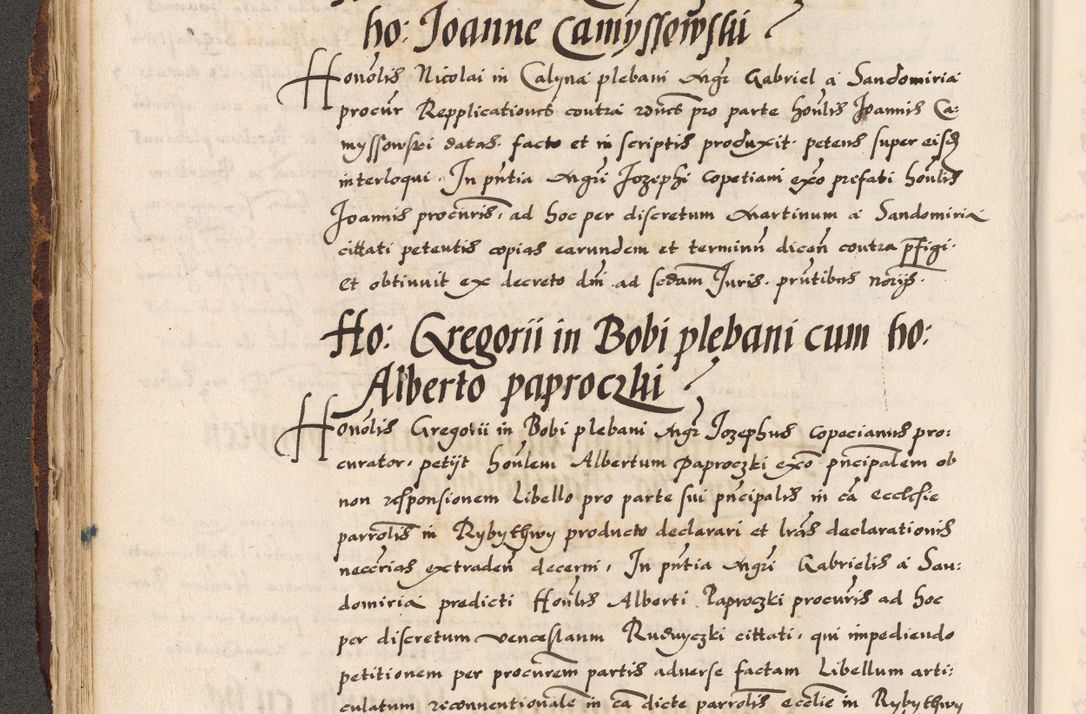 ho: Joanne Camyssowski
Honolis Nicolai in Calyna plebani Mgr Gabriel a Sandomiria
procur Repplicationes contra rones pro parte honlis Joannis Ca:
myssowski datas. facto et in scriptis produxit. petens super eisd
interloqui. In pntia Mgri Jozephi Copetiani exo prefati honlis
Joannis procuris, ad hoc per discretum Martinum a Sandomiria
cittati petentis copias earundem et terminn dicen contra pfigi.
et obtinuit ex decreto dni ad sedam Juris. pntibus noriis.
Ho: Gregorii in Bobi plebani cum ho:
Alberto paproczki
Honolis Gregorii in Bobi plebani Mgr Jozephus Copecianus pro:
curator, petijt honlem Albertum Paproczki exo pncipalem ob
non responsionem Libello pro parte sui pncipalis in ca ecclesie
parrolis in Rybythwy producto declarari et lras declarationis
neccrias extraden decerni, In pntia Mgri Gabrielis a San:
domiria predicti Honlis Alberti Paproczki procuris ad hoc
per discretum Venceslaum Rudnyczki cittati, qui impediendo
petitionem per procurem partis adverse factam Libellum arti:
culatum reconventionale in ca dicte parrolis ecclie in Rybythwy